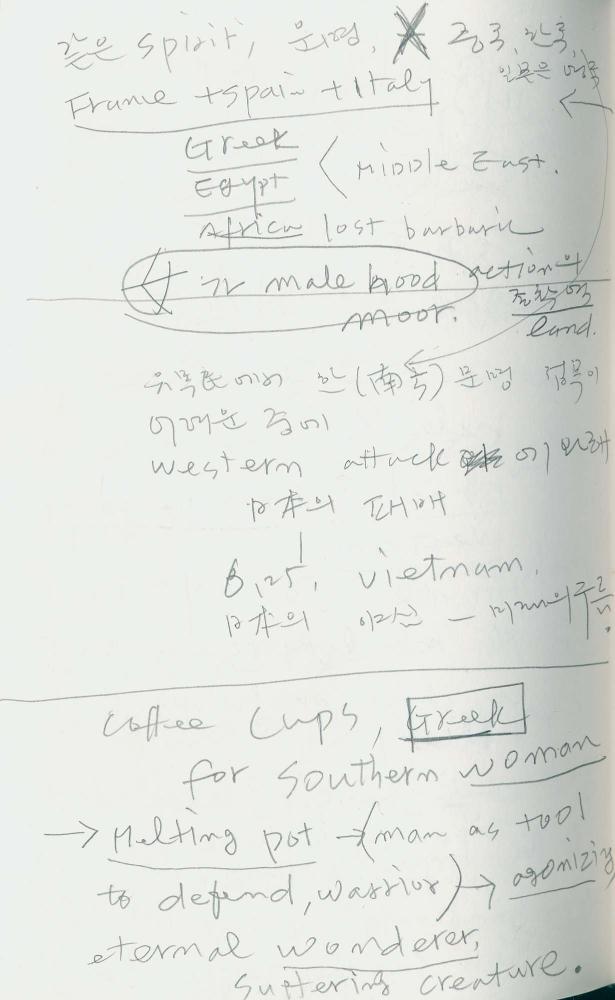 같은 spirit, 문명, 중국, 한국,
France + spain + Italy
Greek
Egypt
Middle East.
Africa lost barbaric
male blood action의
moor.
land.
유목민에게 한(南녹) 문명 접목이
어려운 중에
western attack 에 의해
日本의 패배
6.25, vietnam,
日本의
coffee cups, Greek
for southern woman
→ Melting pot → (man as tool
to defend, warrior) → agonizing
eternal wonderer,
suffering creature.